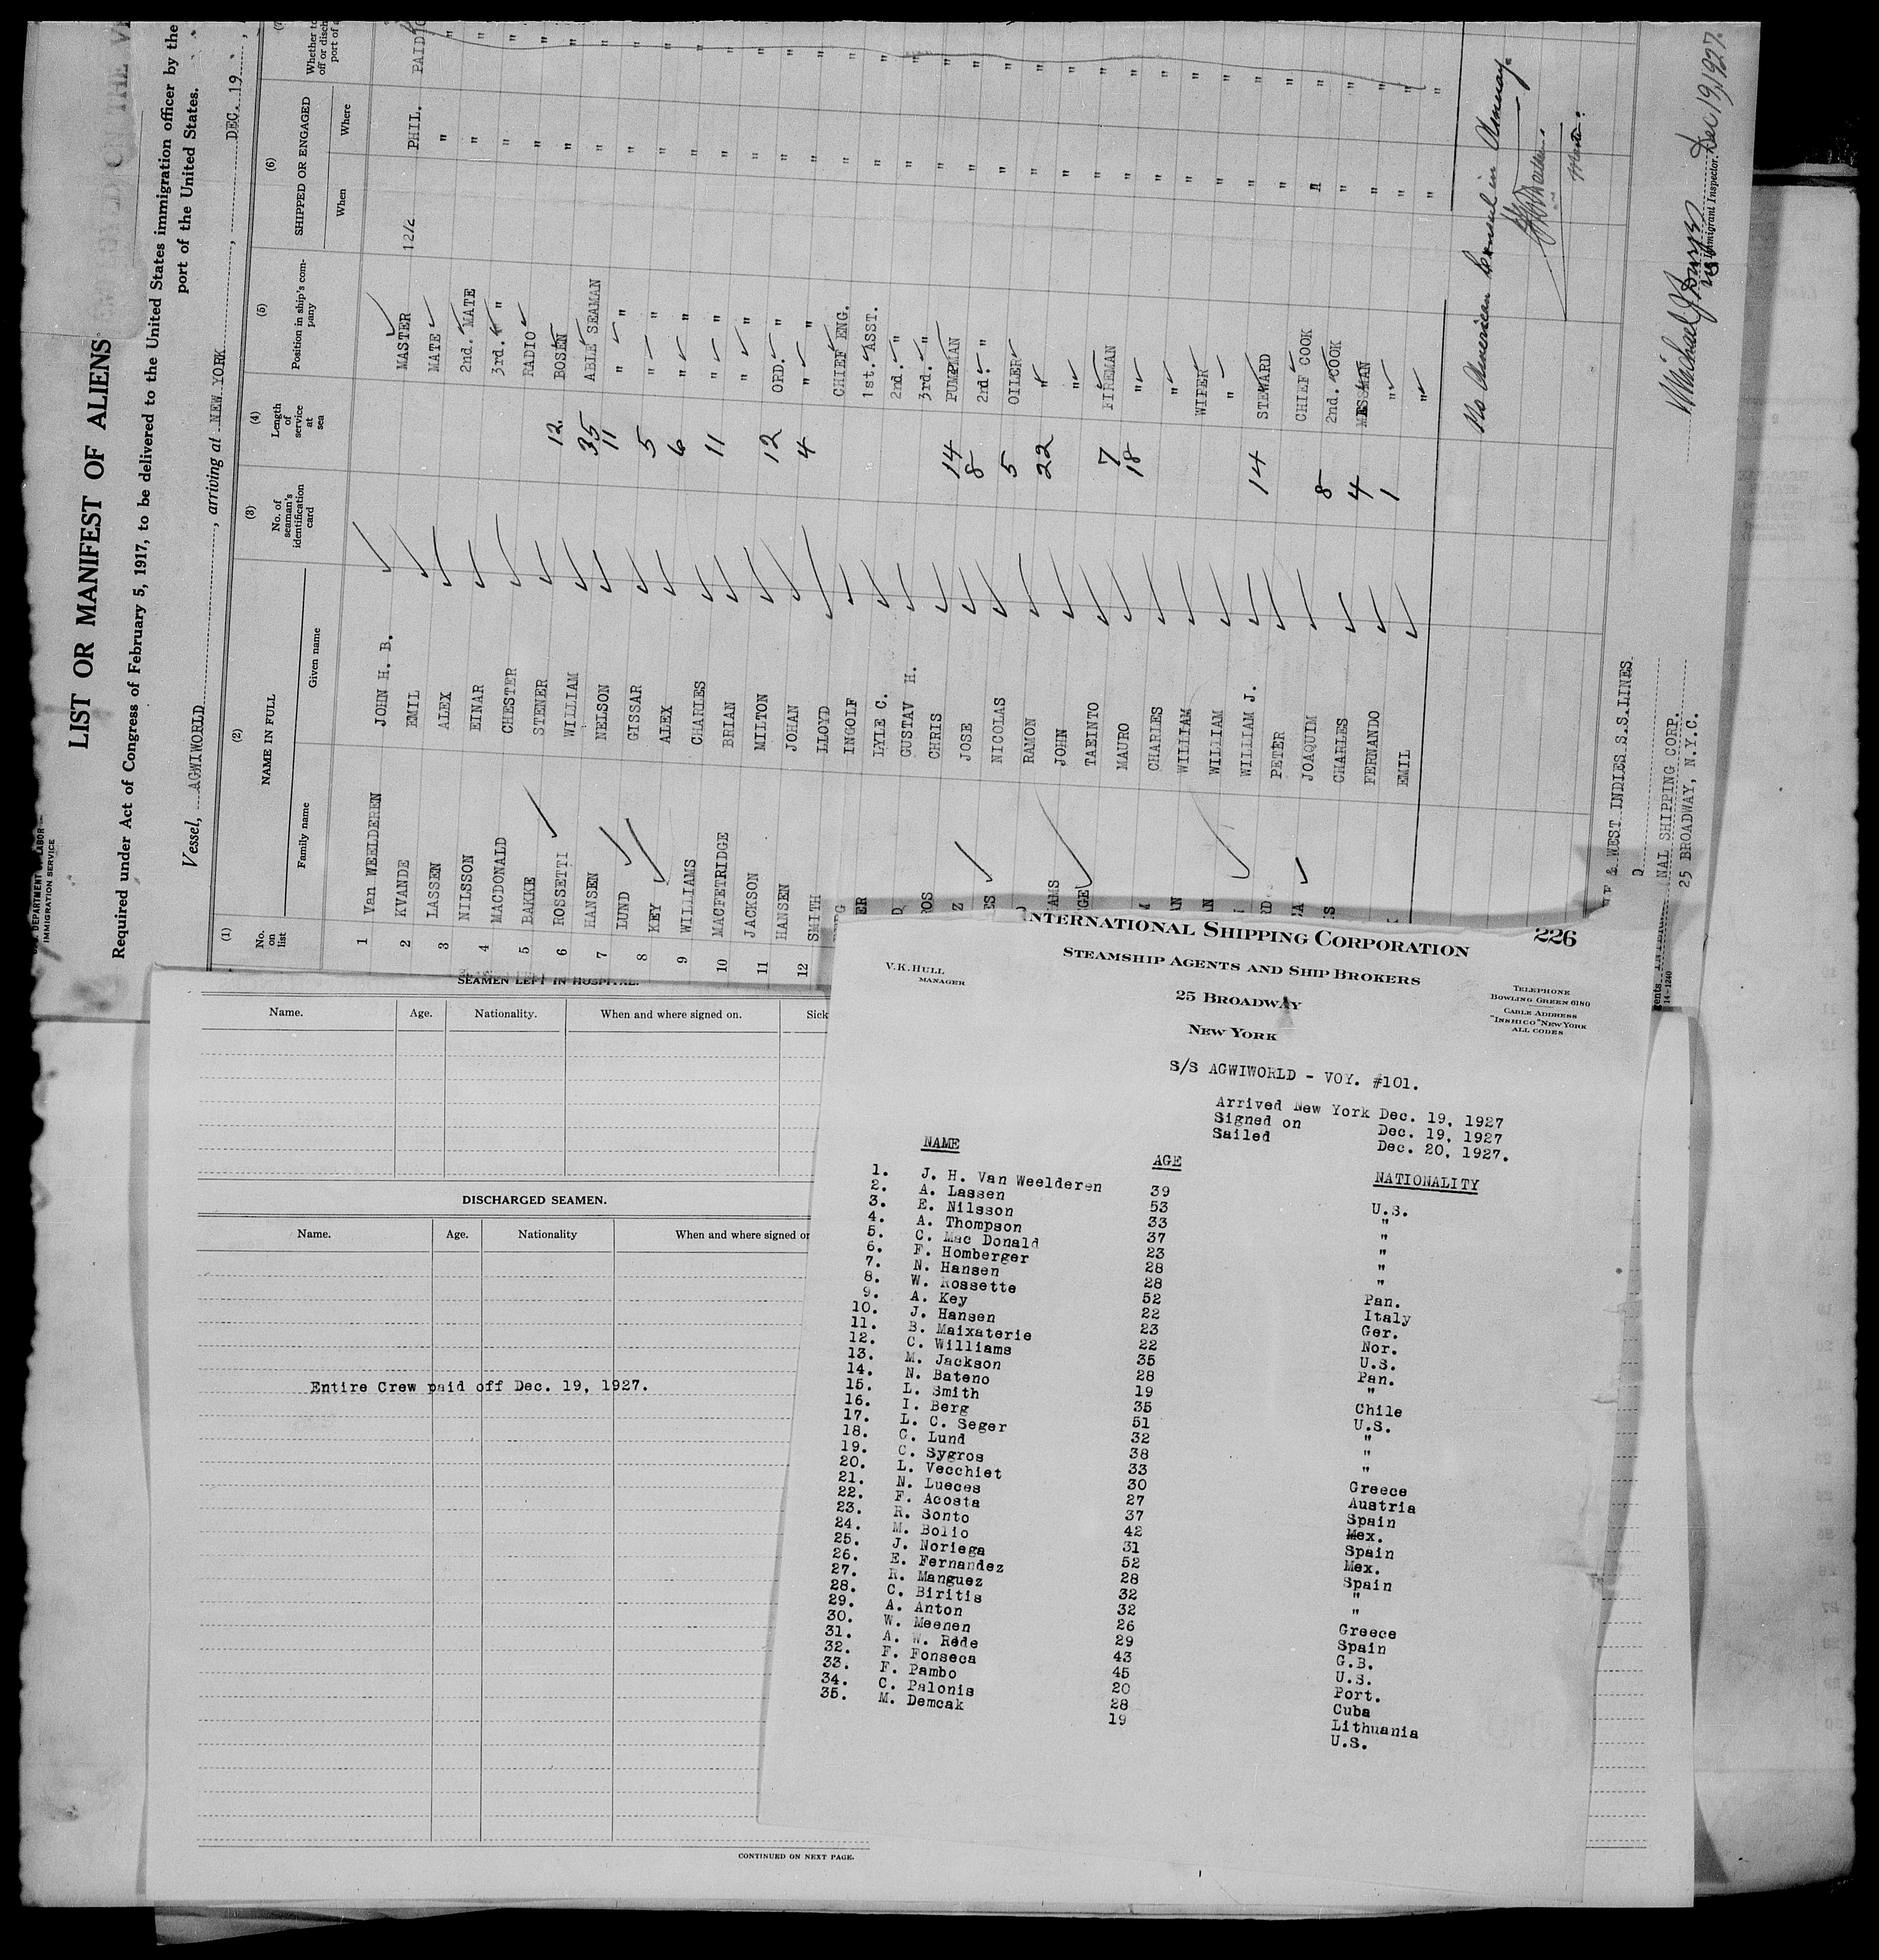 U.S. DEPARTMENT OF LABOR
IMMIGRATION SERVICE
LIST OR MANIFEST OF ALIENS
Required under Act of Congress of February 5, 1917, to be delivered to the United States immigration officer by the
port of the United States.
Vessel, AGWIWORLD, arriving at NEW YORK, DEC. 19,
(1) (2) (3) (4) (5) (6)
No. on list
NAME IN FULL
Family name Given name
No. of seaman's identification card
Length of service at sea
Position in ship's company
SHIPPED OR ENGAGED
When Where
1 Van WEELDEREN JOHN H. B. MASTER 12/2 PHIL. PAID
2 KVANDE EMIL MATE " "
3 LASSEN ALEX 2nd. MATE " "
4 NILSSON EINAR 3rd. " " "
5 MACDONALD CHESTER RADIO " "
BAKKE STENER 12 BOSEN " "
6 ROSSETTI WILLIAM 35 ABLE SEAMAN " "
7 HANSEN NELSON 11 " " " "
8 LUND GISSAR 5 " " " "
KEY ALEX 6 " " " "
9 WILLIAMS CHARLES 11 " " " "
10 MACFETRIDGE BRIAN " " " "
11 JACKSON MILTON 12 ORD. " " "
12 HANSEN JOHAN 4 " " " "
SMITH LLOYD CHIEF ENG. " "
INGOLF 1st. ASST. " "
LYLE C. 2nd. " " "
GUSTAV H. 3rd. " " "
CHRIS 14 PUMPMAN " "
JOSE 8 2nd. " " "
NICOLAS 5 OILER " "
RAMON 22 " " "
JOHN " " "
TAEINTO 7 FIREMAN " "
MAURO 18 " " "
CHARLES " " "
WILLIAM WIPER " "
WILLIAM " " "
WILLIAM J. 14 STEWARD " "
PETER CHIEF COOK " "
JOAQUIM 8 2nd. COOK " "
CHARLES 4 MESSMAN " "
FERNANDO 1 " " "
EMIL " " "
No American Consul in
Dec 19, 1927
Immigrant Inspector.
& WEST INDIES S.S.LINES
NAL SHIPPING CORP.
25 BROADWAY, N.Y.C.
14-1240
SEAMEN LEFT IN HOSPITAL.
Name. Age. Nationality. When and where signed on. Sick
DISCHARGED SEAMEN.
Name. Age. Nationality When and where signed on
Entire Crew paid off Dec. 19, 1927.
CONTINUED ON NEXT PAGE.
226
INTERNATIONAL SHIPPING CORPORATION
STEAMSHIP AGENTS AND SHIP BROKERS
V.K.HULL
MANAGER
25 BROADWAY
NEW YORK
TELEPHONE
BOWLING GREEN 6180
CABLE ADDRESS
"INSHICO" NEW YORK
ALL CODES
S/S AGWIWORLD - VOY. #101.
Arrived New York Dec. 19, 1927
Signed on Dec. 19, 1927
Sailed Dec. 20, 1927.
NAME AGE NATIONALITY
1. J. H. Van Weelderen 39 U.S.
2. A. Lassen 53 "
3. E. Nilsson 33 "
4. A. Thompson 37 "
5. C. Mac Donald 23 "
6. F. Homberger 28 Pan.
7. N. Hansen 28 Italy
8. W. Rossette 52 Ger.
9. A. Key 22 Nor.
10. J. Hansen 23 U.S.
11. B. Maixaterie 22 Pan.
12. C. Williams 35 "
13. M. Jackson 28 Chile
14. N. Bateno 19 U.S.
15. L. Smith 35 "
16. I. Berg 51 "
17. L. C. Seger 32 "
18. G. Lund 38 Greece
19. C. Sygros 33 Austria
20. L. Vecchiet 30 Spain
21. N. Lueces 27 Mex.
22. F. Acosta 37 Spain
23. R. Sonto 42 Mex.
24. M. Bolio 31 Spain
25. J. Noriega 52 "
26. E. Fernandez 28 "
27. R. Manguez 32 Greece
28. C. Biritis 32 Spain
29. A. Anton 26 G.B.
30. W. Meenen 29 U.S.
31. A. W. Rede 43 Port.
32. F. Fonseca 45 Cuba
33. F. Pambo 20 Lithuania
34. C. Palonis 28 U.S.
35. M. Demcak 19